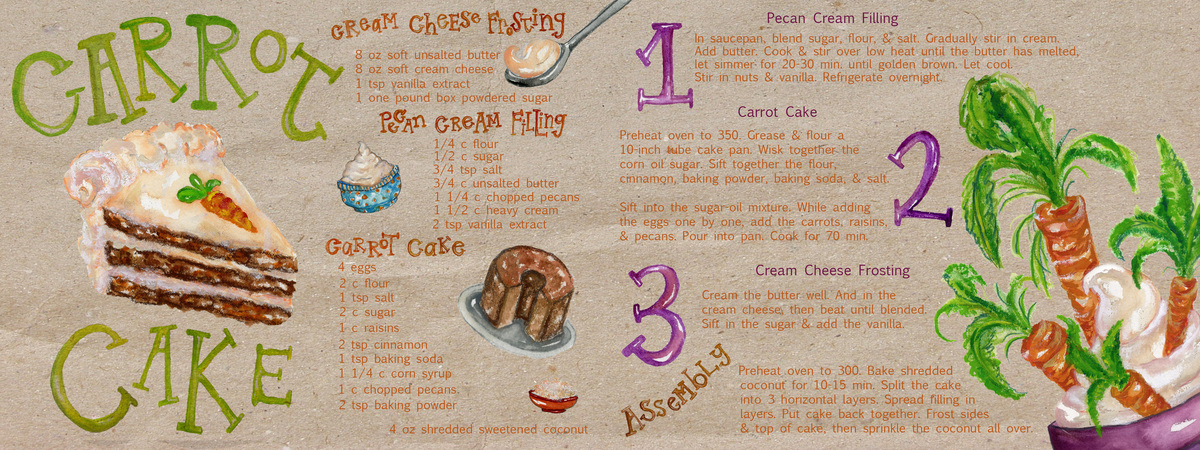 CARROT
CAKE
CREAM CHEESE FROSTING
8 oz soft unsalted butter
8 oz soft cream cheese
1 tsp vanilla extract
1 one pound box powdered sugar
PECAN CREAM FILLING
1/4 c flour
1/2 c sugar
3/4 tsp salt
3/4 c unsalted butter
1 1/4 c chopped pecans
1 1/2 c heavy cream
2 tsp vanilla extract
CARROT CAKE
4 eggs
2 c flour
1 tsp salt
2 c sugar
1 c raisins
2 tsp cinnamon
1 tsp baking soda
1 1/4 c corn syrup
1 c chopped pecans.
2 tsp baking powder
4 oz shredded sweetened coconut
1
Pecan Cream Filling
In saucepan, blend sugar, flour, & salt. Gradually stir in cream.
Add butter. Cook & stir over low heat until the butter has melted,
let simmer for 20-30 min. until golden brown. Let cool.
Stir in nuts & vanilla. Refrigerate overnight.
2
Carrot Cake
Preheat oven to 350. Grease & flour a
10-inch tube cake pan. Wisk together the
corn oil sugar. Sift together the flour,
cinnamon, baking powder, baking soda, & salt.
Sift into the sugar-oil mixture. While adding
the eggs one by one, add the carrots, raisins,
& pecans. Pour into pan. Cook for 70 min.
3
Cream Cheese Frosting
Cream the butter well. And in the
cream cheese, then beat until blended.
Sift in the sugar & add the vanilla.
ASSEMBLY
Preheat oven to 300. Bake shredded
coconut for 10-15 min. Split the cake
into 3 horizontal layers. Spread filling in
layers. Put cake back together. Frost sides
& top of cake, then sprinkle the coconut all over.